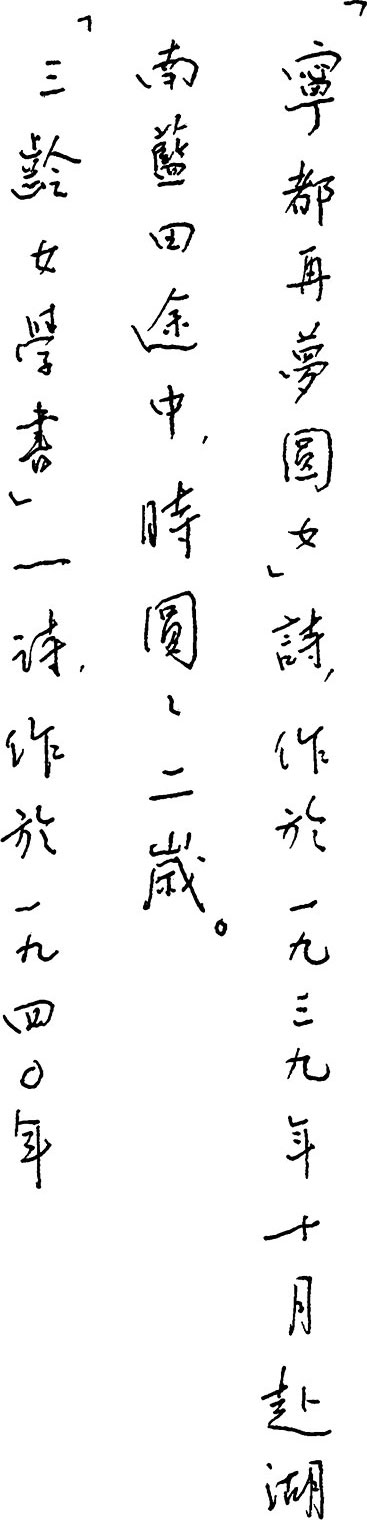 「寧都再夢圓女」詩，作於一九三九年十月赴湖
南藍田途中，時圓〻二歲。
「三齡女學書」一诗，作於一九四〇年